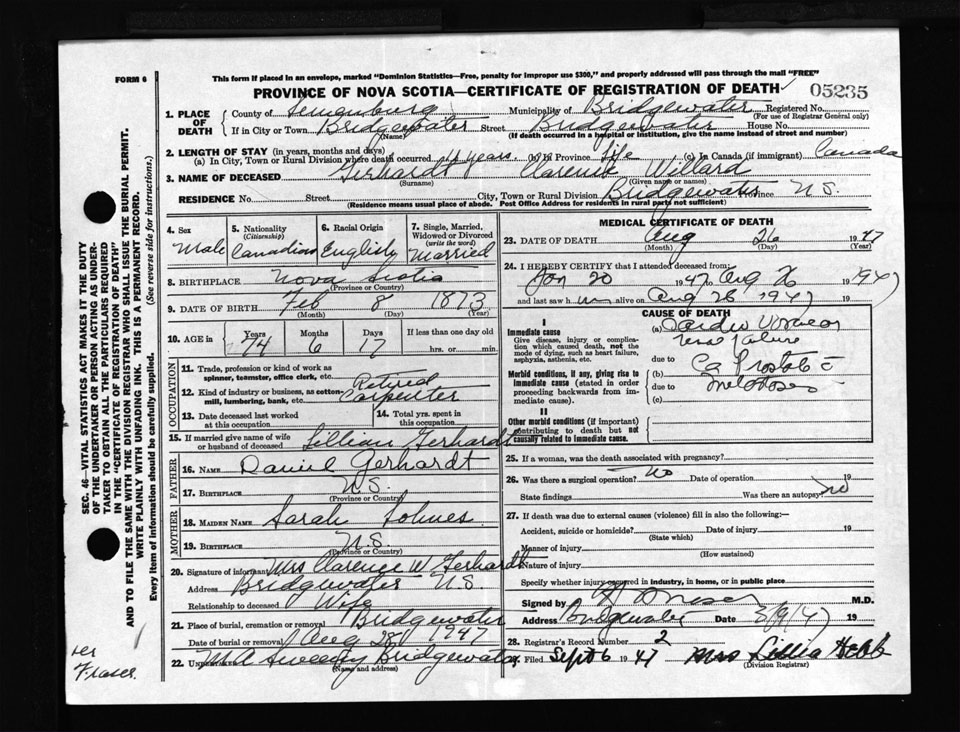 FORM 6
This form if placed in an envelope, marked "Dominion Statistics—Free, penalty for improper use $300," and properly addressed will pass through the mail "FREE"
PROVINCE OF NOVA SCOTIA—CERTIFICATE OF REGISTRATION OF DEATH 05235
1. PLACE OF DEATH
County of Lunenburg Municipality of Bridgewater Registered No.
(For use of Registrar General only)
If in City or Town Bridgewater Street Bridgewater House No.
(Name) (If death occurred in a hospital or institution, give name instead of street and number)
2. LENGTH OF STAY (in years, months and days)
(a) In City, Town or Rural Division where death occurred years. (b) In Province life (c) In Canada (if immigrant) Canada
3. NAME OF DECEASED Gerhardt Clarence Willard
(Surname) (Given name or names)
RESIDENCE No. Street City, Town or Rural Division Bridgewater Province N.S.
(Residence means usual place of abode. Post Office Address for residents in rural parts not sufficient)
4. Sex Male
5. Nationality (Citizenship) Canadian
6. Racial Origin English
7. Single, Married, Widowed or Divorced (write the word) Married
8. BIRTHPLACE Nova Scotia
(Province or Country)
9. DATE OF BIRTH Feb 8 1873
(Month) (Day) (Year)
10. AGE in Years Months Days If less than one day old
74 6 17 hrs. or min.
OCCUPATION
11. Trade, profession or kind of work as spinner, teamster, office clerk, etc. Retired
12. Kind of industry or business, as cotton-mill, lumbering, bank, etc. Carpenter
13. Date deceased last worked at this occupation
14. Total yrs. spent in this occupation
15. If married give name of wife or husband of deceased Lillian Gerhardt
FATHER
16. NAME Daniel Gerhardt
17. BIRTHPLACE N.S.
(Province or Country)
MOTHER
18. MAIDEN NAME Sarah
19. BIRTHPLACE N.S.
(Province or Country)
20. Signature of informant Mrs Clarence W Gerhardt
Address Bridgewater N.S.
Relationship to deceased Wife
21. Place of burial, cremation or removal Bridgewater
Date of burial or removal Aug 28 1947
22. Sweeny Bridgewater
(Name and address)
MEDICAL CERTIFICATE OF DEATH
23. DATE OF DEATH Aug 26 1947
(Month) (Day) (Year)
24. I HEREBY CERTIFY that I attended deceased from:
Jan 20 1947 to Aug 26 1947
and last saw him alive on Aug 26 1947 19
CAUSE OF DEATH
I
Immediate cause
Give disease, injury or complication which caused death, not the mode of dying, such as heart failure, asphyxia, asthenia, etc.
(a) Cardio Vascular
Renal failure
due to
Morbid conditions, if any, giving rise to immediate cause (stated in order proceeding backwards from immediate cause).
(b) Ca Prostate
due to
(c)
II
Other morbid conditions (if important) contributing to death but not causally related to immediate cause.
25. If a woman, was the death associated with pregnancy?
26. Was there a surgical operation? No Date of operation 19
State findings Was there an autopsy? no
27. If death was due to external causes (violence) fill in also the following:—
Accident, suicide or homicide? Date of injury 19
(State which)
Manner of injury
(How sustained)
Nature of injury
Specify whether injury occurred in industry, in home, or in public place
Signed by M.D.
Address Bridgewater Date 3/9/47 19
28. Registrar's Record Number 2
Filed Sept 6 1947 Mrs Lillia Hebb
(Division Registrar)
SEC. 46—VITAL STATISTICS ACT MAKES IT THE DUTY
OF THE UNDERTAKER OR PERSON ACTING AS UNDER-
TAKER TO OBTAIN ALL THE PARTICULARS REQUIRED
IN THE "CERTIFICATE OF REGISTRATION OF DEATH"
AND TO FILE THE SAME WITH THE DIVISION REGISTRAR WHO SHALL ISSUE THE BURIAL PERMIT.
WRITE PLAINLY WITH UNFADING INK. THIS IS A PERMANENT RECORD.
Every item of information should be carefully supplied. (See reverse side for instructions.)
Fraser